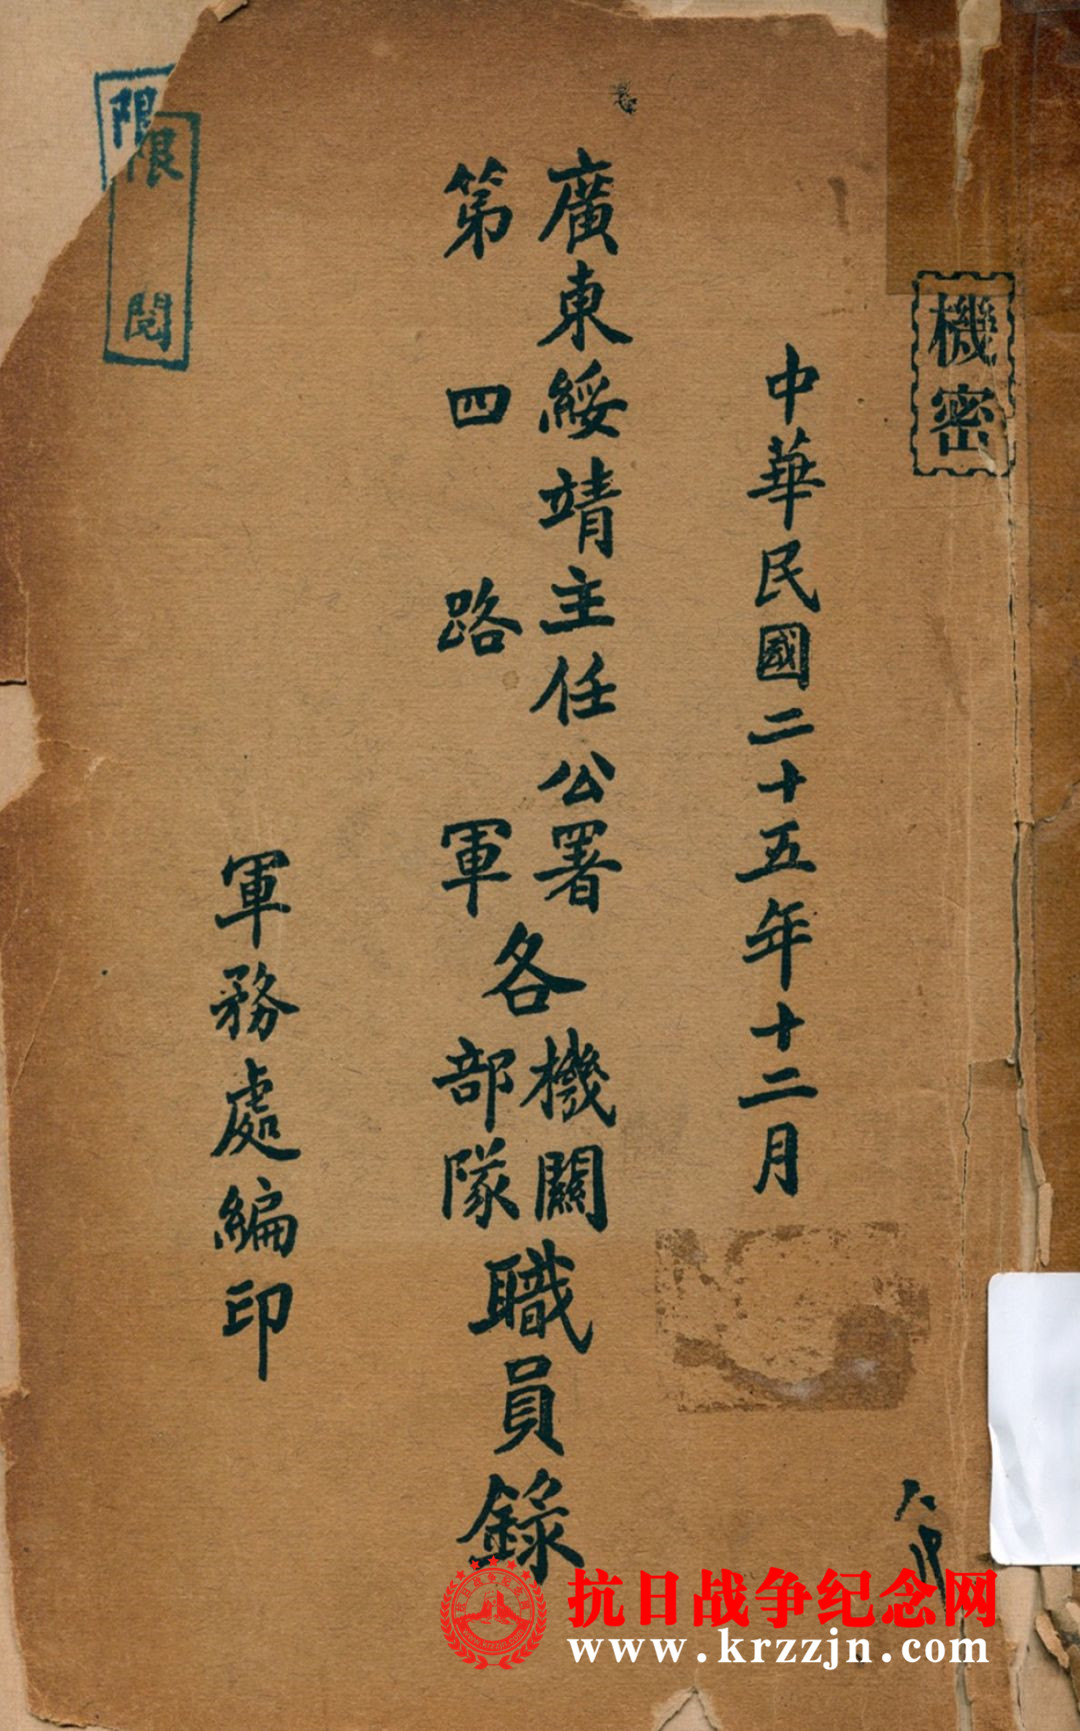 機密
中華民國二十五年十二月
廣東綏靖主任公署
第四路軍
各
機關
部隊
職員錄
軍務處編印
限
限閱
抗日战争纪念网
www.krzzjn.com